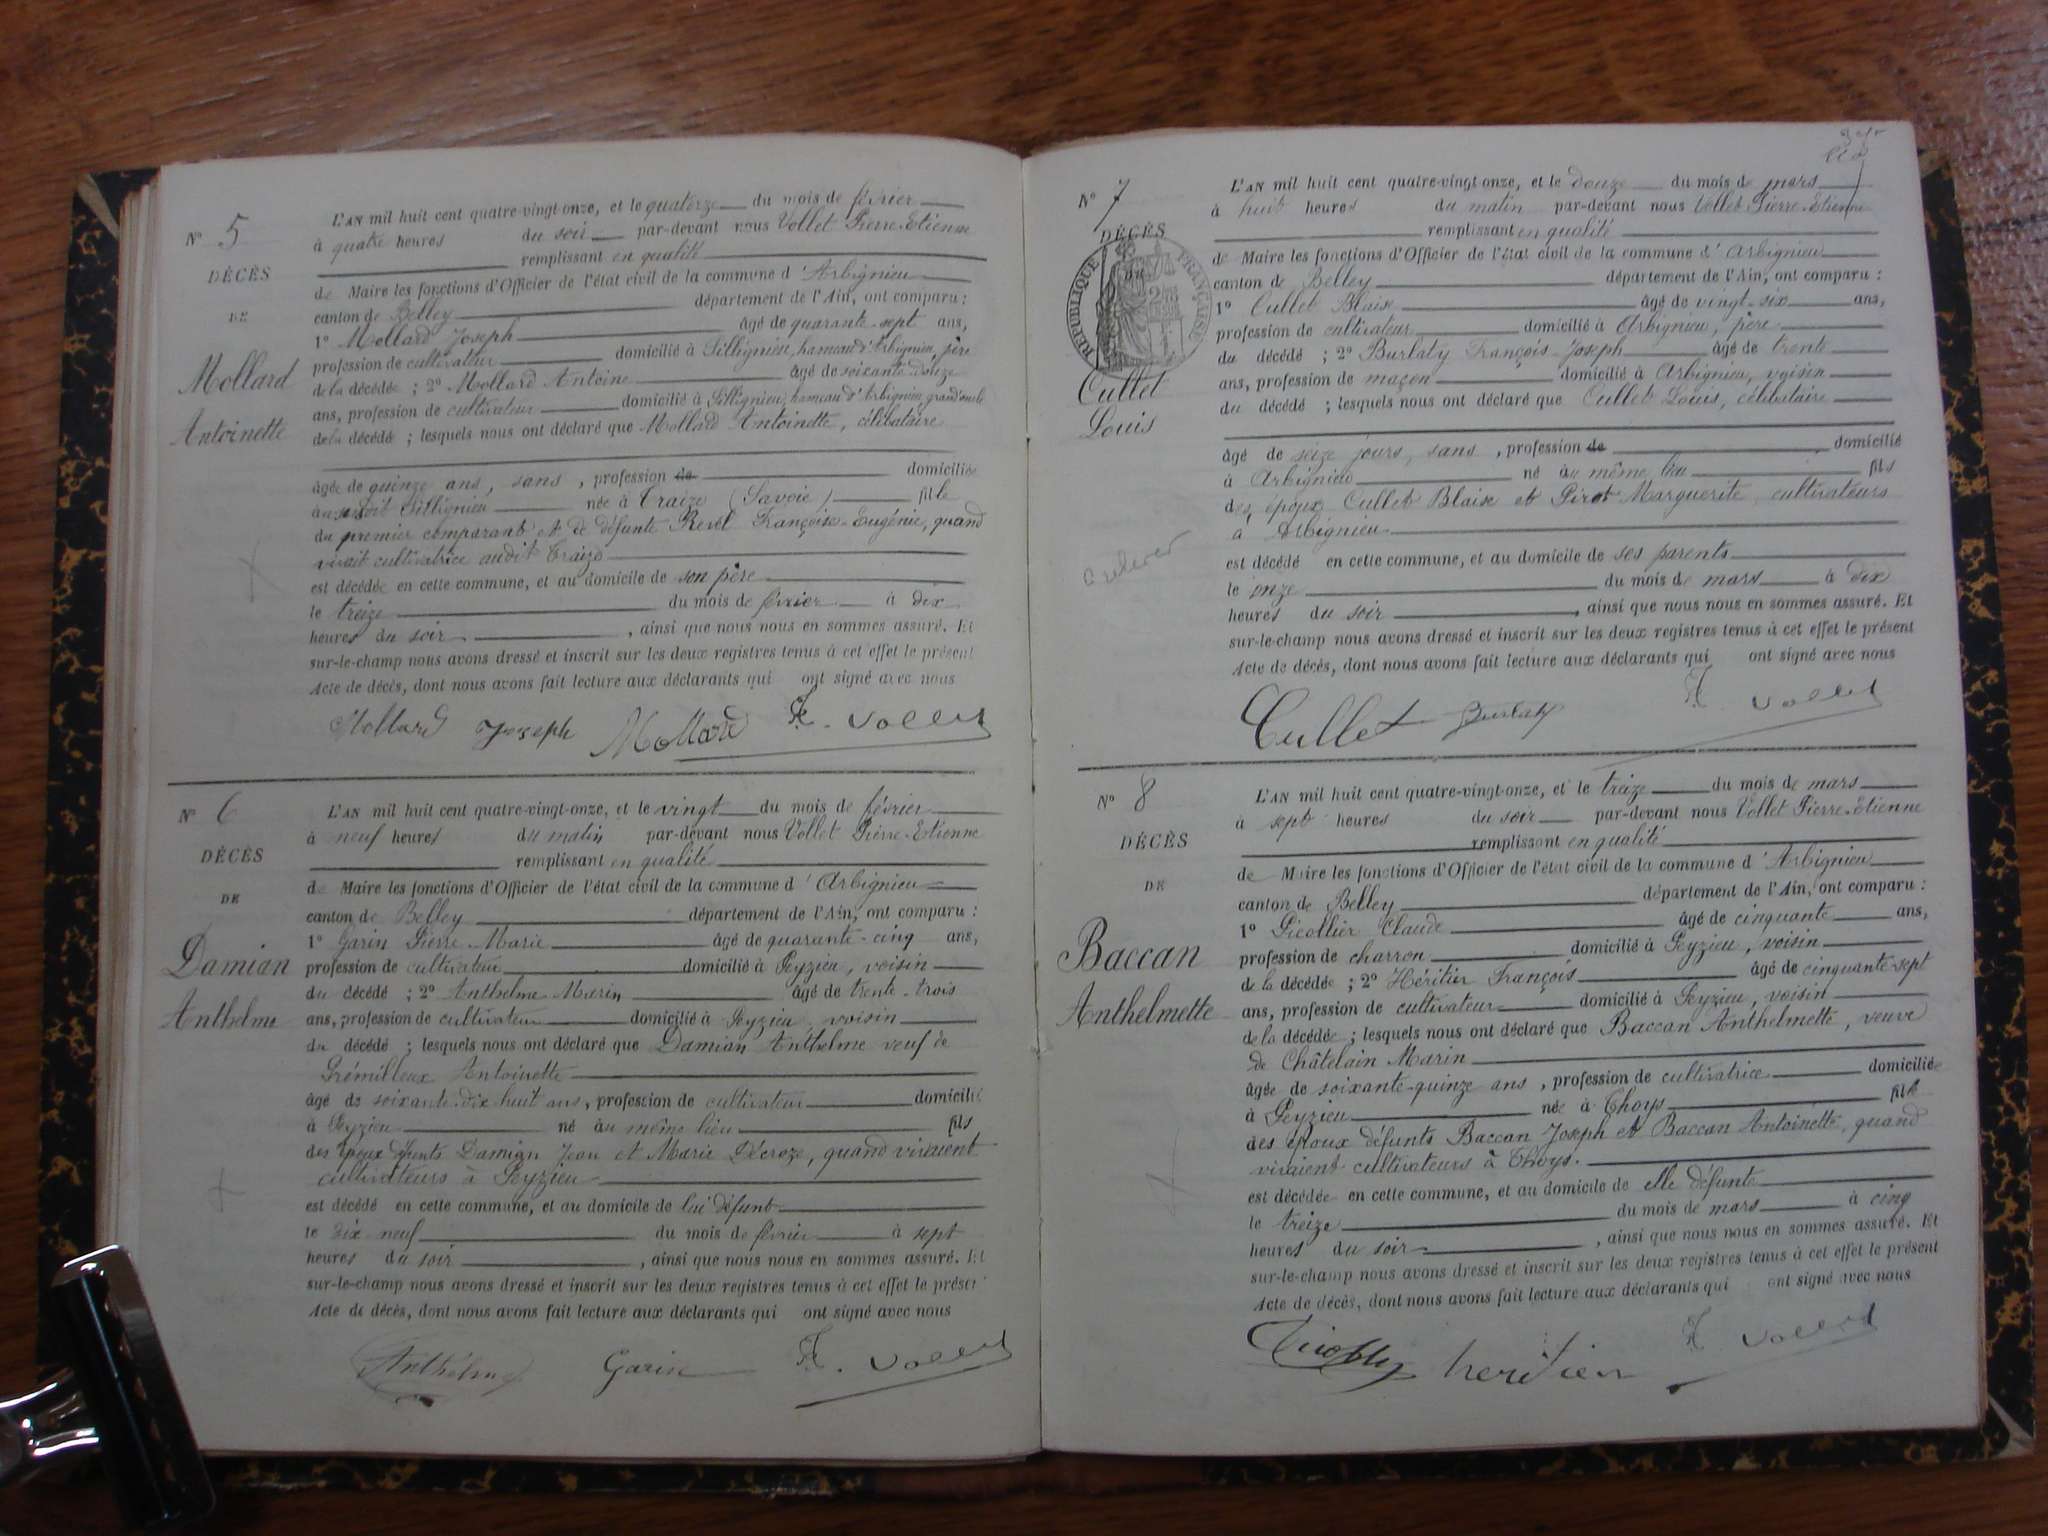 N° 5
DÉCÈS
DE
Mollard
Antoinette
L'AN mil huit cent quatre-vingt-onze, et le quatorze du mois de février
à quatre heures du soir par-devant nous Vollet Pierre-Etienne
remplissant en qualité
de Maire les fonctions d'Officier de l'état civil de la commune d'Arbignieu
canton de Belley département de l'Ain, ont comparu :
1° Mollard Joseph âgé de quarante-sept ans,
profession de cultivateur domicilié à Sillignieu, hameau d'Arbignieu, père
de la décédée ; 2° Mollard Antoine âgé de soixante-douze
ans, profession de cultivateur domicilié à Sillignieu, hameau d'Arbignieu, grand'oncle
de la décédée ; lesquels nous ont déclaré que Mollard Antoinette, célibataire
âgée de quinze ans, sans, profession de domiciliée
au susdit Sillignieu née à Traize (Savoie) fille
du premier comparant et de défunte Revel Françoise-Eugénie, quand
vivait cultivatrice audit Traize
est décédée en cette commune, et au domicile de son père
le treize du mois de février à dix
heures du soir, ainsi que nous nous en sommes assuré. Et
sur-le-champ nous avons dressé et inscrit sur les deux registres tenus à cet effet le présent
Acte de décès, dont nous avons fait lecture aux déclarants qui ont signé avec nous
Mollard Joseph Mollard Vollet
N° 6
DÉCÈS
DE
Damian
Anthelme
L'AN mil huit cent quatre-vingt-onze, et le vingt du mois de février
à neuf heures du matin par-devant nous Vollet Pierre-Etienne
remplissant en qualité
de Maire les fonctions d'Officier de l'état civil de la commune d'Arbignieu
canton de Belley département de l'Ain, ont comparu :
1° Garin Pierre-Marie âgé de quarante-cinq ans,
profession de cultivateur domicilié à Peyzieu, voisin
du décédé ; 2° Anthelme Marin âgé de trente-trois
ans, profession de cultivateur domicilié à Peyzieu, voisin
du décédé ; lesquels nous ont déclaré que Damian Anthelme veuf de
Grémilleux Antoinette
âgé de soixante-dix-huit ans, profession de cultivateur domicilié
à Peyzieu né au même lieu fils
des époux défunts Damian Jean et Marie Décroze, quand vivaient
cultivateurs à Peyzieu
est décédé en cette commune, et au domicile de lui défunt
le dix-neuf du mois de février à sept
heures du soir, ainsi que nous nous en sommes assuré. Et
sur-le-champ nous avons dressé et inscrit sur les deux registres tenus à cet effet le présen
Acte de décès, dont nous avons fait lecture aux déclarants qui ont signé avec nous
Anthelme Garin Vollet
N° 7
DÉCÈS
RÉPUBLIQUE FRANÇAISE
Cullet
Louis
L'AN mil huit cent quatre-vingt-onze, et le douze du mois de mars
à huit heures du matin par-devant nous Vollet Pierre-Etienne
remplissant en qualité
de Maire les fonctions d'Officier de l'état civil de la commune d'Arbignieu
canton de Belley département de l'Ain, ont comparu :
1° Cullet Blaise âgé de vingt-six ans,
profession de cultivateur domicilié à Arbignieu, père
du décédé ; 2° Burlaty François-Joseph âgé de trente
ans, profession de maçon domicilié à Arbignieu, voisin
du décédé ; lesquels nous ont déclaré que Cullet Louis, célibataire
âgé de seize jours, sans, profession de domicilié
à Arbignieu né au même lieu fils
des époux Cullet Blaise et Pirot Marguerite, cultivateurs
à Arbignieu
est décédé en cette commune, et au domicile de ses parents
le onze du mois de mars à dix
heures du soir, ainsi que nous nous en sommes assuré. Et
sur-le-champ nous avons dressé et inscrit sur les deux registres tenus à cet effet le présent
Acte de décès, dont nous avons fait lecture aux déclarants qui ont signé avec nous
Cullet Burlaty Vollet
N° 8
DÉCÈS
DE
Baccan
Anthelmette
L'AN mil huit cent quatre-vingt-onze, et le treize du mois de mars
à sept heures du soir par-devant nous Vollet Pierre-Etienne
remplissant en qualité
de Maire les fonctions d'Officier de l'état civil de la commune d'Arbignieu
canton de Belley département de l'Ain, ont comparu :
1° Picollier Claude âgé de cinquante ans,
profession de charron domicilié à Peyzieu, voisin
de la décédée ; 2° Héritier François âgé de cinquante-sept
ans, profession de cultivateur domicilié à Peyzieu, voisin
de la décédée ; lesquels nous ont déclaré que Baccan Anthelmette, veuve
de Châtelain Marin
âgée de soixante-quinze ans, profession de cultivatrice domiciliée
à Peyzieu née à Thoys fille
des époux défunts Baccan Joseph et Baccan Antoinette, quand
vivaient cultivateurs à Thoys.
est décédée en cette commune, et au domicile de elle défunte
le treize du mois de mars à cinq
heures du soir, ainsi que nous nous en sommes assuré. Et
sur-le-champ nous avons dressé et inscrit sur les deux registres tenus à cet effet le présent
Acte de décès, dont nous avons fait lecture aux déclarants qui ont signé avec nous
heritier Vollet